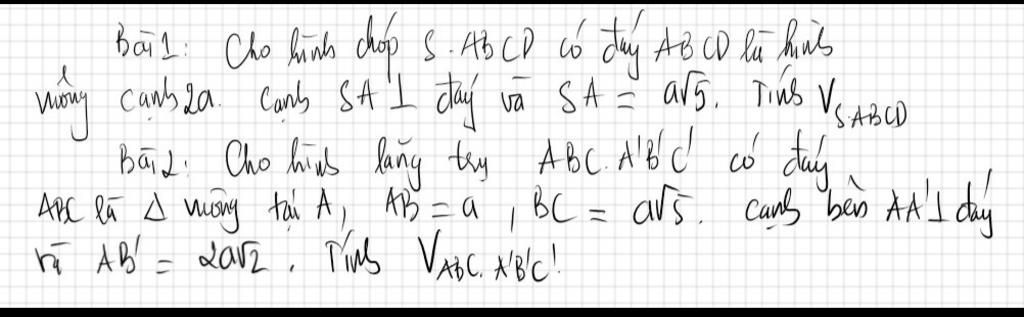 Bài 1: Cho hình chóp S.ABCD có đáy ABCD là hình
vuông cạnh 2a. Cạnh SA ⊥ đáy và SA = a√5. Tính V_{S.ABCD}
Bài 2: Cho hình lăng trụ ABC.A'B'C' có đáy
ABC là Δ vuông tại A, AB = a, BC = a√5. Cạnh bên AA' ⊥ đáy
và AB' = 2a√2. Tính V_{ABC.A'B'C'}